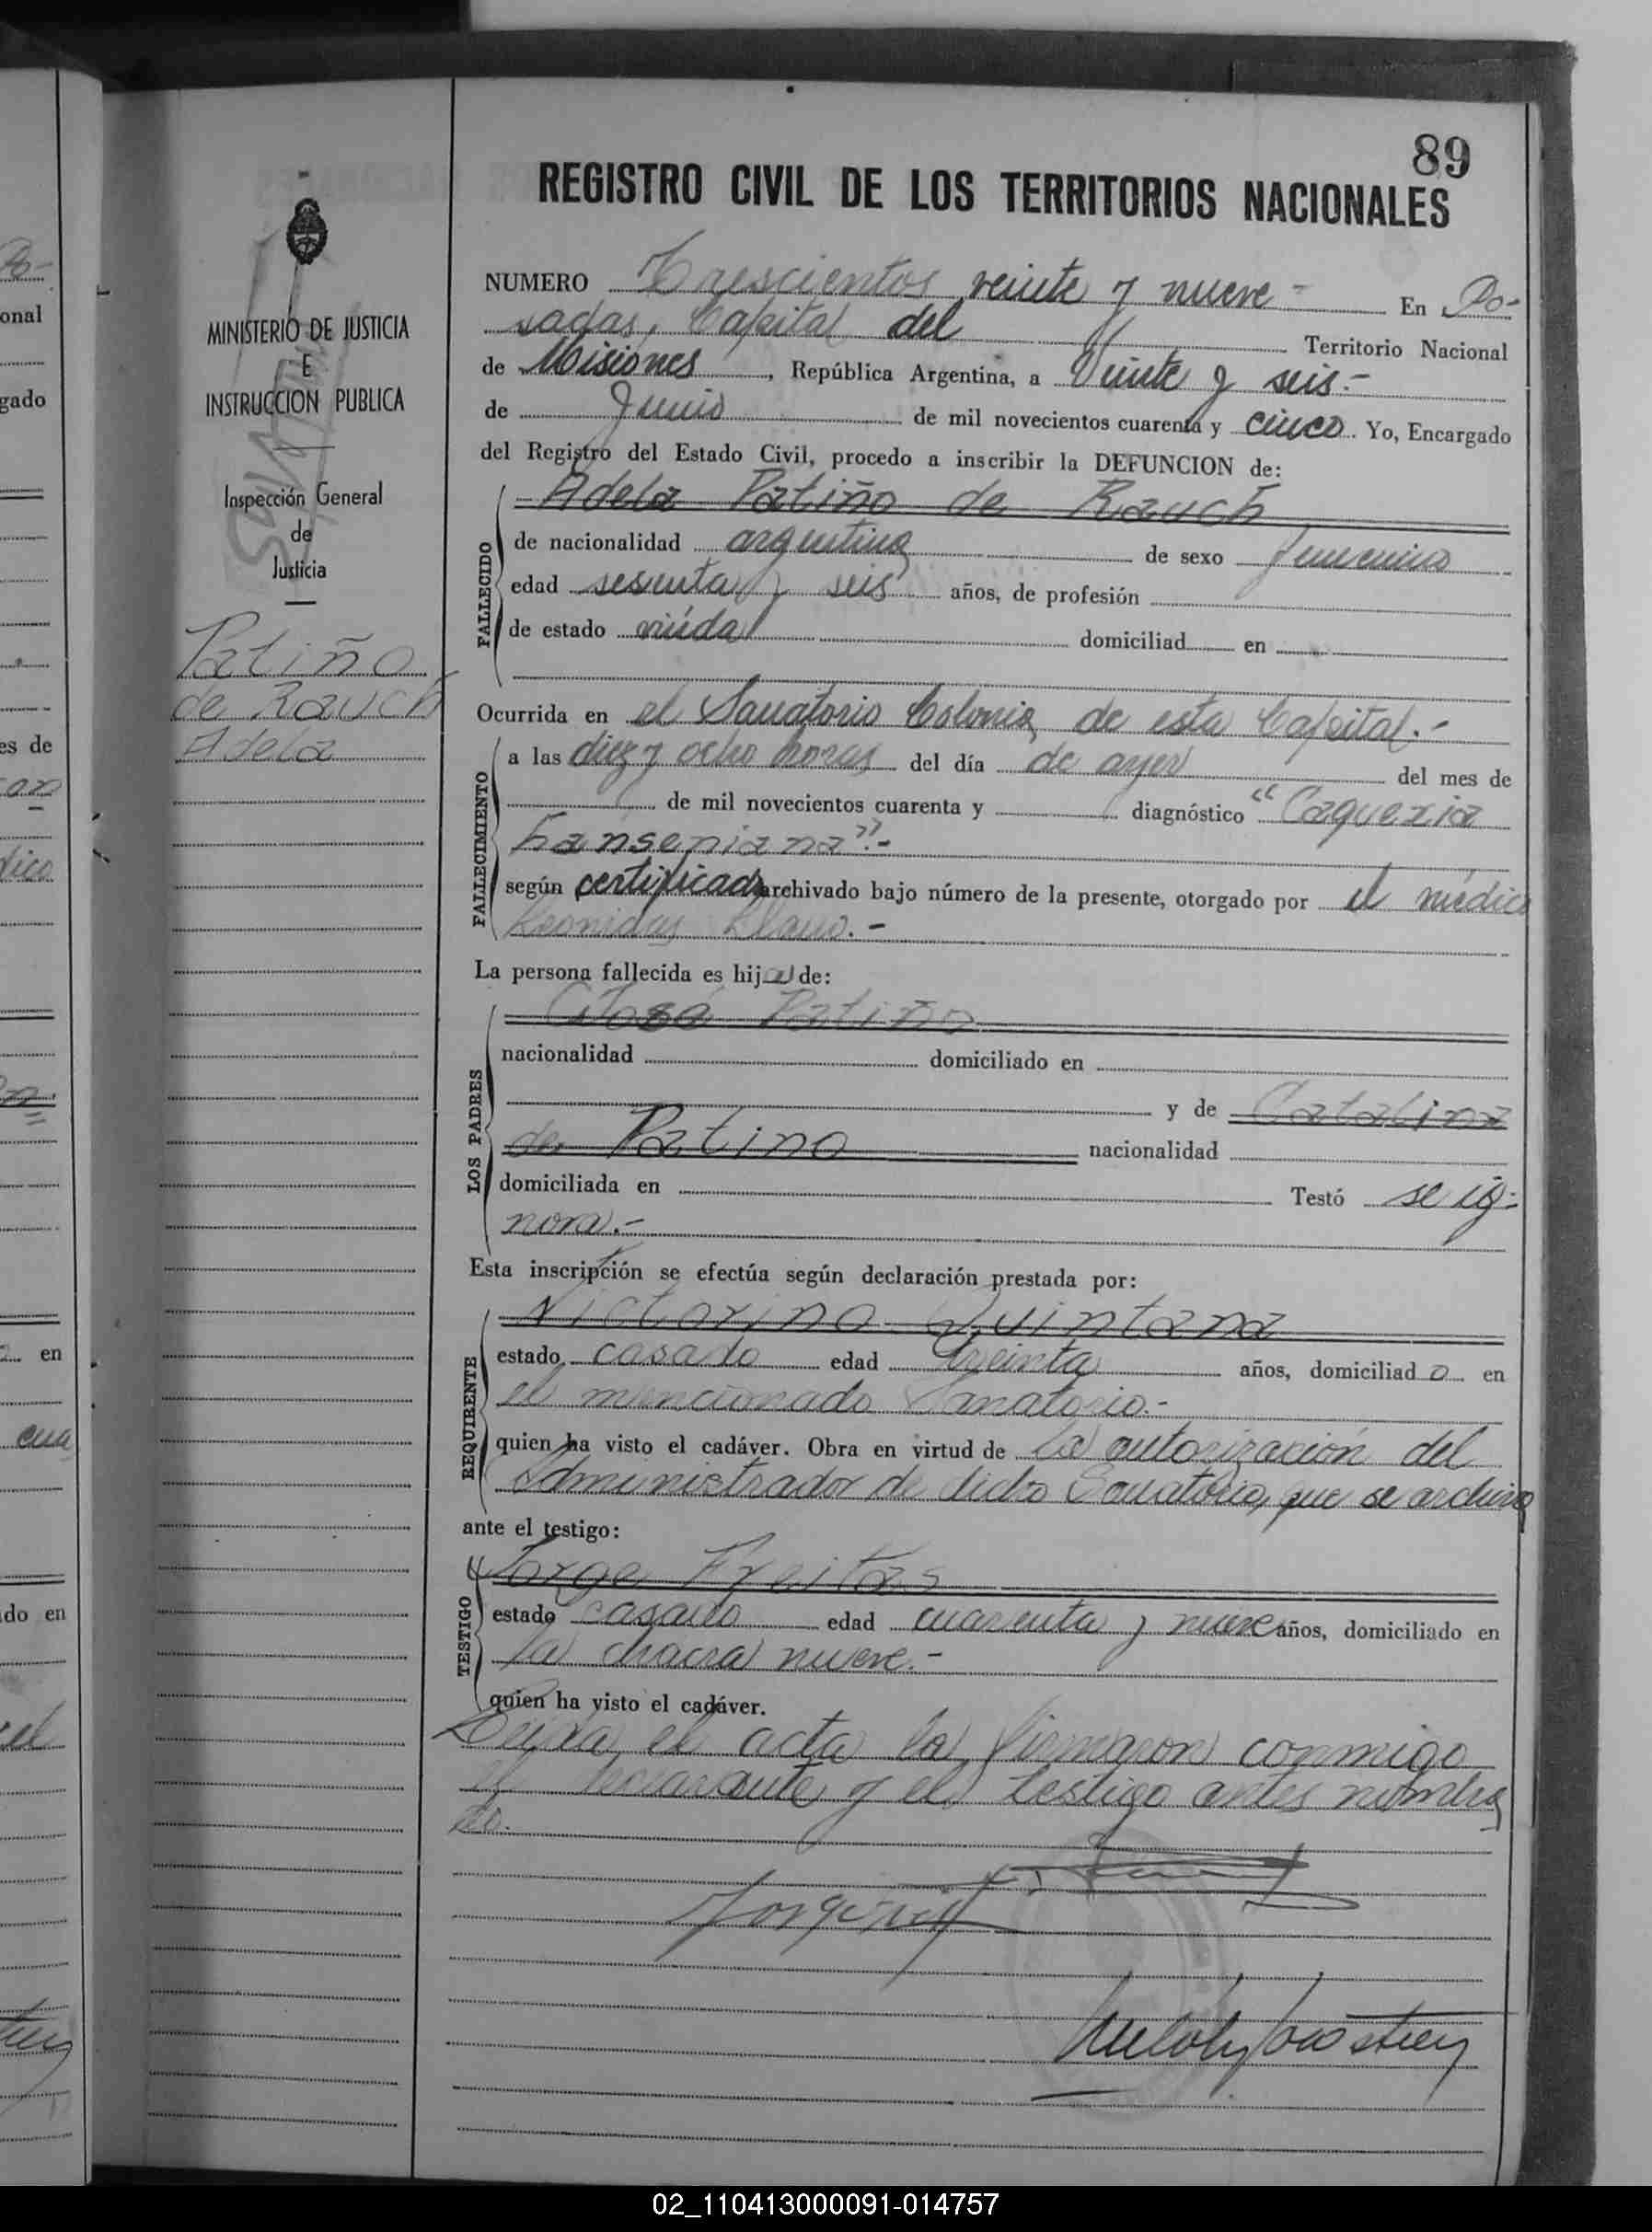 89
REGISTRO CIVIL DE LOS TERRITORIOS NACIONALES
MINISTERIO DE JUSTICIA
E
INSTRUCCION PUBLICA
Inspección General
de
Justicia
Patiño
de Rauch
Adela
NUMERO Trescientos veinte y nueve - En Po-
sadas, Capital del Territorio Nacional
de Misiones, República Argentina, a Veinte y seis.-
de Junio de mil novecientos cuarenta y cinco. Yo, Encargado
del Registro del Estado Civil, procedo a inscribir la DEFUNCION de:
FALLECIDO
Adela Patiño de Rauch
de nacionalidad argentina de sexo femenino
edad sesenta y seis años, de profesión
de estado viúda domiciliad en
Ocurrida en el Sanatorio Colonia, de esta Capital.-
FALLECIMIENTO
a las diez y ocho horas del día de ayer del mes de
de mil novecientos cuarenta y diagnóstico "Caquexia
hanseniana".-
según certificado archivado bajo número de la presente, otorgado por el médico
Leonidas Llano.-
La persona fallecida es hija de:
LOS PADRES
José Patiño
nacionalidad domiciliado en
y de Catalina
de Patino nacionalidad
domiciliada en Testó se ig-
nora.-
Esta inscripción se efectúa según declaración prestada por:
REQUIRENTE
Victorino Quintana
estado casado edad treinta años, domiciliado en
el mencionado Sanatorio.-
quien ha visto el cadáver. Obra en virtud de la autorización del
Administrador de dicho Sanatorio, que se archiva
ante el testigo:
TESTIGO
Jorge Freitas
estado casado edad cuarenta y nueve años, domiciliado en
la chacra nueve.-
quien ha visto el cadáver.
Leída el acta la firmaron conmigo
el declarante y el testigo antes nombra
do.
02_110413000091-014757